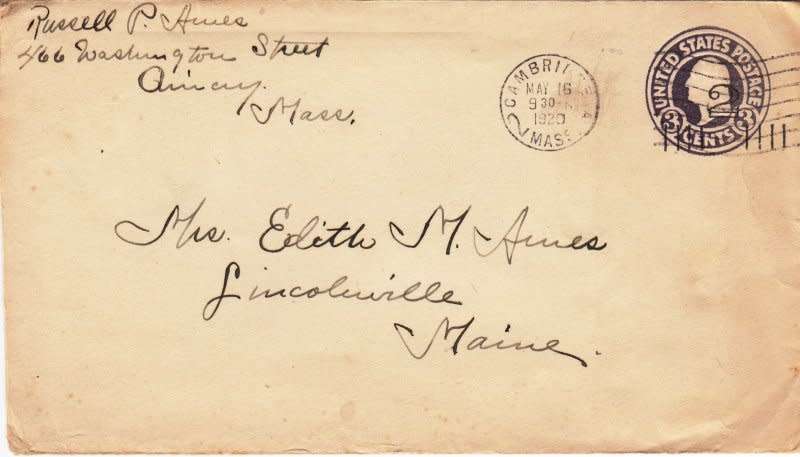 Russell P. Ames
466 Washington Street
Quincy.
Mass.
CAMBRI
MAY 16
9 30
1920
MASS.
UNITED STATES POSTAGE
2
3 CENTS 3
Mrs. Edith M. Ames
Lincolnville
Maine.